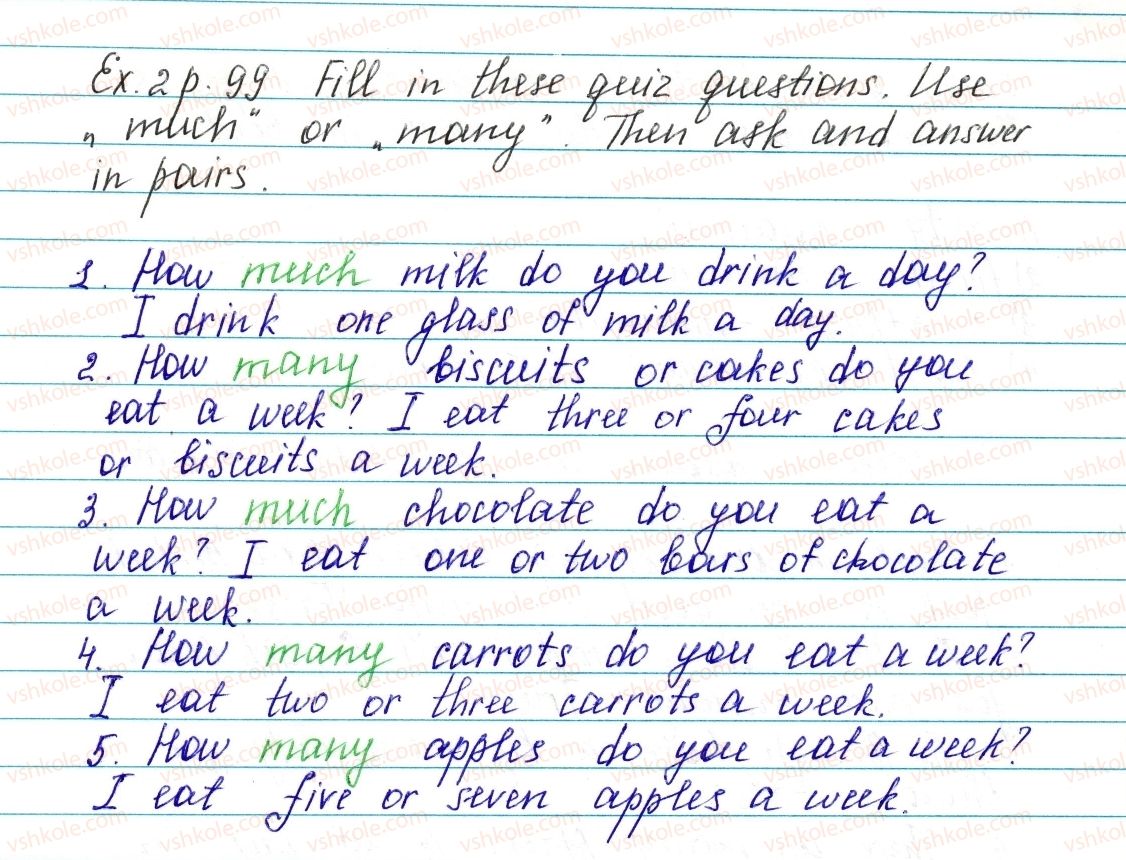 Ex. 2 p. 99 Fill in these quiz questions. Use
„much“ or „many“. Then ask and answer
in pairs.
1. How much milk do you drink a day?
I drink one glass of milk a day.
2. How many biscuits or cakes do you
eat a week? I eat three or four cakes
or biscuits a week.
3. How much chocolate do you eat a
week? I eat one or two bars of chocolate
a week.
4. How many carrots do you eat a week?
I eat two or three carrots a week.
5. How many apples do you eat a week?
I eat five or seven apples a week.
vshkole.com